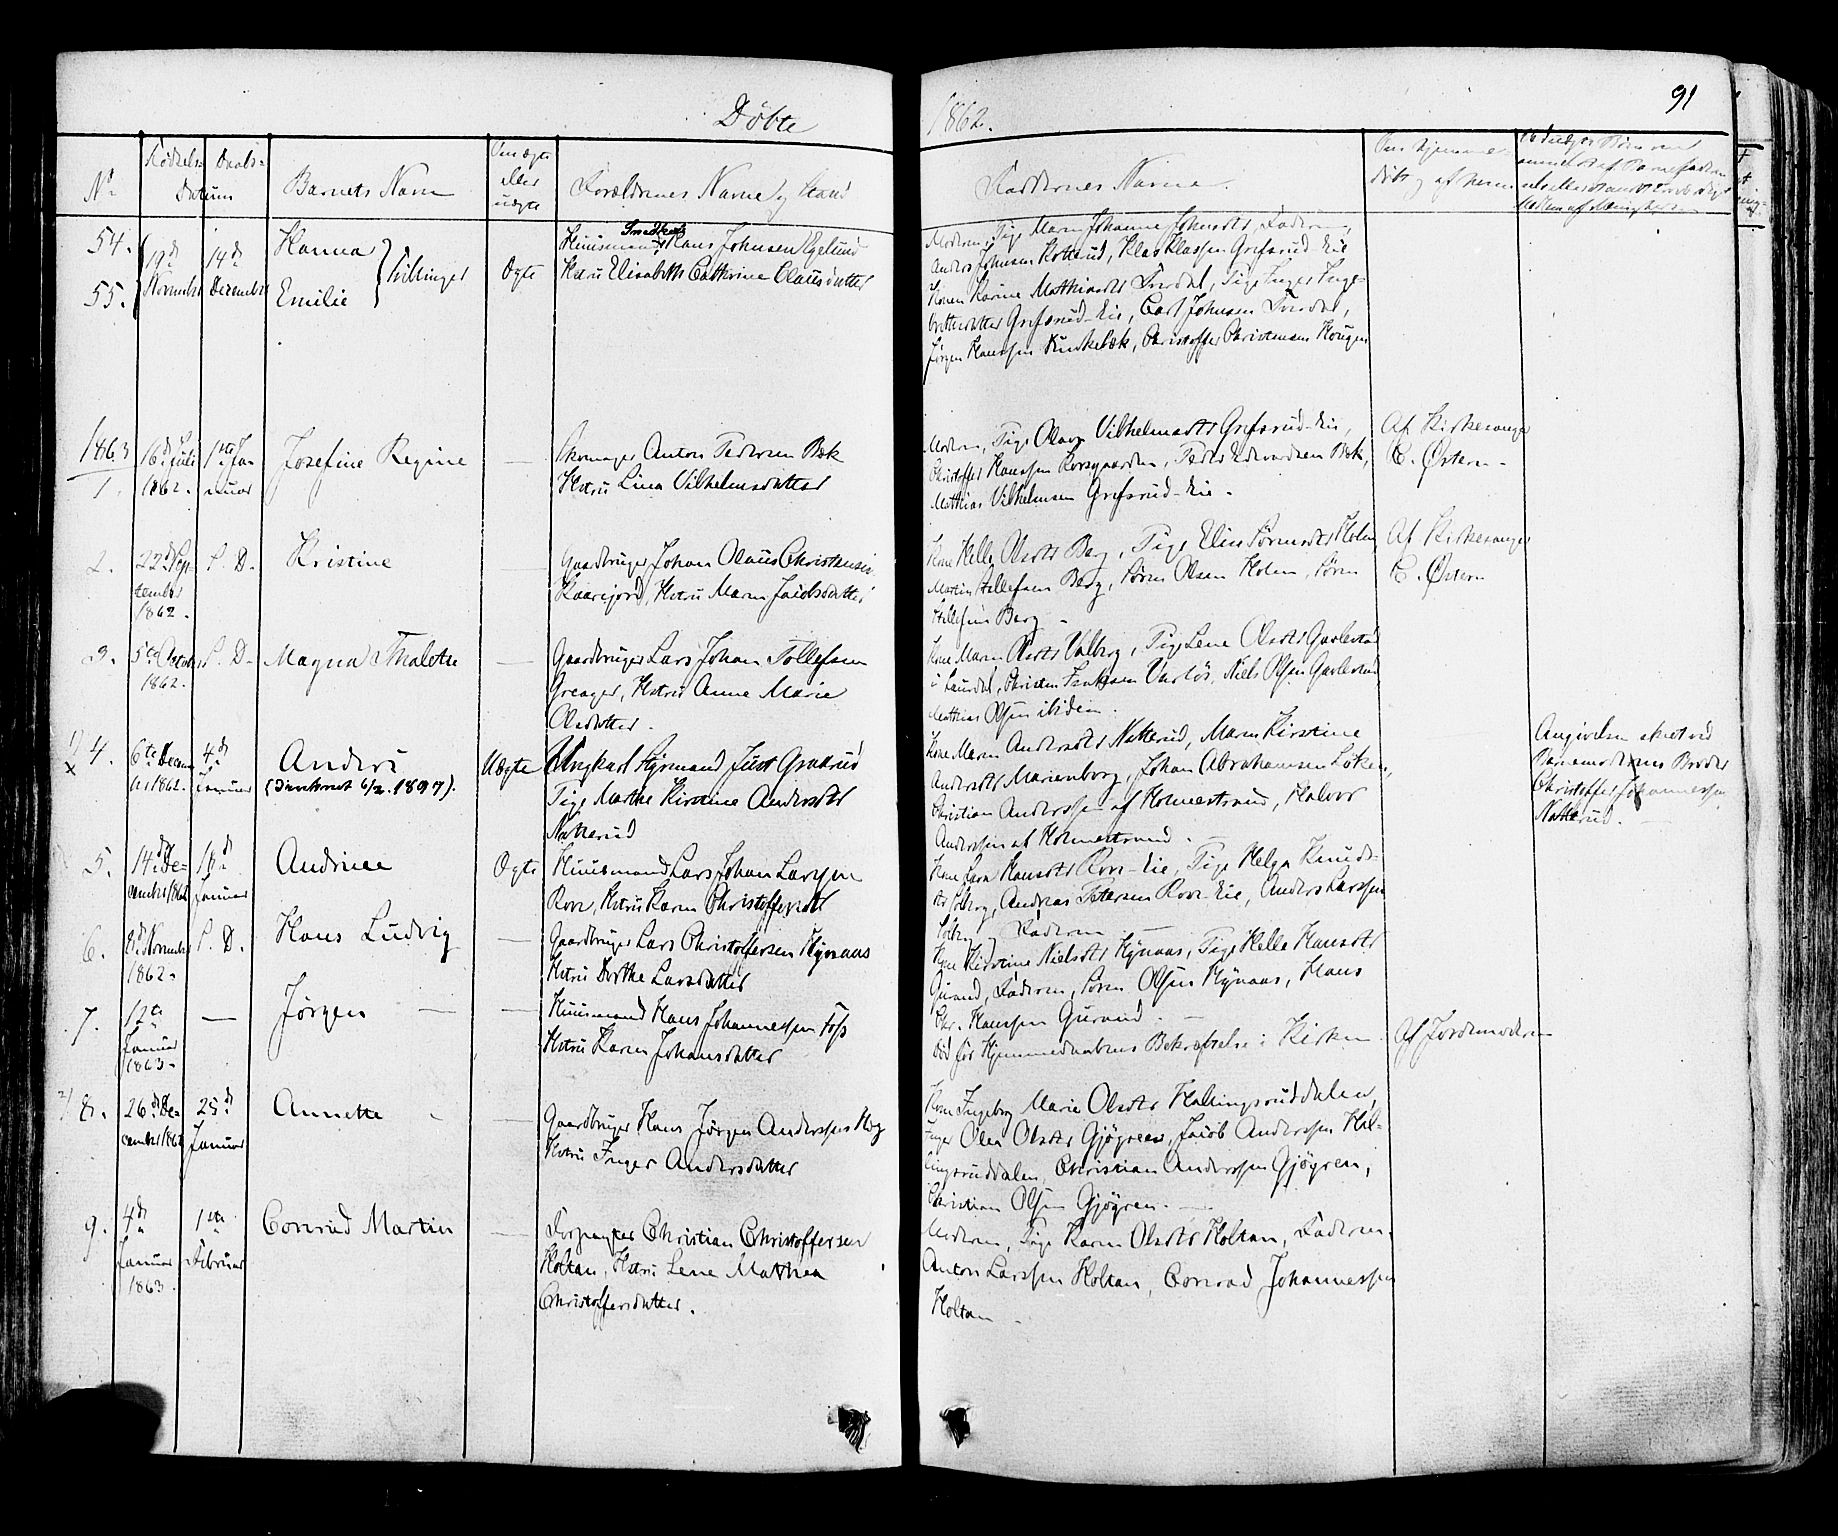 Døbte
1862.
91
No
Fødsels-
Daabs-
Datum
Barnets Navn
Om ægte
eller
uægte
Forældrenes Navne og Stand
Faddernes Navne.
54.
55.
19de
November
14de
December
Hanna
Emilie
Tvillinger
Ægte
Huusmand Hans Johnsen Egelund
Hstru Elisabeth Cathrine Clausdatter
Moderen, Pige Maren Johanne Johnsdtr, Faderen,
Anders Johnsen, Klas Klassen Grefsrud-Eie
Konen Karine Mathisdtr, Pige Inger Inge-
Grefsrud-Eie, Carl Johnsen
Jørgen Hanssen, Christoffer Christensen Hougen
1863
1.
16de Juli
1862.
1ste Ja-
nuar
Josefine Regine
Skomager Anton Pedersen Bæk
Hstru Lina Vilhelmsdatter
Moderen, Pige Olava Vilhelmsdtr Grefsrud-Eie,
Christoffer Hanssen Korsgaarden, Peder Edvardsen Bæk,
Mathias Vilhelmsen Grefsrud-Eie.
Af Kirkesanger
C. Østern
2.
22de Sep-
tember
1862.
S. D.
Kristine
Gaardbruger Johan Olaus Christensen
Hstru Maren Jacobsdatter
Kone Helle Olsdtr Berg, Pige Elen Sørensdtr Holm
Martin Tollefsen Berg, Søren Olsen Holm, Søren
Tollefsen Berg
Af Kirkesanger
C. Østern
3.
5te October
1862.
S. D.
Magna Thalette
Gaardbruger Lars Johan Tollefsen
Greager, Hstru Anne Marie
Olsdatter.
Kone Maren Olsdtr Valberg, Pige Lene Olsdtr
Niels Olsen
Mathias Olsen ibidem.
4.
6te Decem-
ber 1862.
4de
Januar
Anders
(Indvandret 6/2. 1897).
Uægte
Ungkarl Styrmand Just Graarud
Pige Marthe Kirstine Andersdtr
Natterud
Kone Maren Andersdtr Natterud, Maren Kirstine
Andersdtr Marienborg, Johan Abrahamsen Løken,
Christian Anderssen af Holmestrand, Halvor
Anderssen af Holmestrand.
Angivelsen skeet ved
Barnemoderens Broder
Christoffer Johannessen
Natterud.
5.
14de De-
cember 1862
18de
Januar
Andrine
Ægte
Huusmand Lars Johan Larssen
Rove, Hstru Karen Christoffersdtr
Kone Lara Hansdtr Rove-Eie, Pige Helga Knuds-
dtr Solberg, Andreas Petersen Rove-Eie, Anders Larssen
Solberg, Faderen
6.
8de November
1862.
S. D.
Hans Ludvig
Gaardbruger Lars Christoffersen Hynaas
Hstru Dorthe Larsdatter
Kone Kirstine Nielsdtr Hynaas, Pige Helle Hansdtr
Gurand, Faderen, Søren Olsen Hynaas, Hans
Chr. Hanssen Gurand.
7.
12te
Januar
1863.
Jørgen
Huusmand Hans Johannessen Foss
Hstru Karen Johansdatter
Død før Hjemmedaabens Bekræftelse i Kirken
Af Jordemoderen
8.
26de De-
cember 1862
25de
Januar
Annette
Gaardbruger Hans Jørgen Anderssen Hog
Hstru Inger Andersdatter
Kone Ingeborg Marie Olsdtr Hallingsruddalen,
Inger Olea Olsdtr Gjøgren, Jacob Anderssen Hal-
lingsruddalen, Christian Anderssen Gjøgren,
Christian Olsen Gjøgren.
9.
4de
Januar
1863.
1ste
Februar
Conrad Martin
Forpagter Christian Christoffersen
Holtan, Hstru Lene Mathea
Christoffersdatter.
Moderen, Pige Karen Olsdtr Holtan, Faderen,
Anton Larssen Holtan, Conrad Johannessen
Holtan